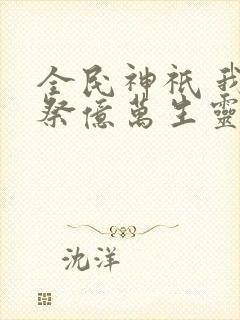 全民神祇 我
祭億萬生靈
沈洋